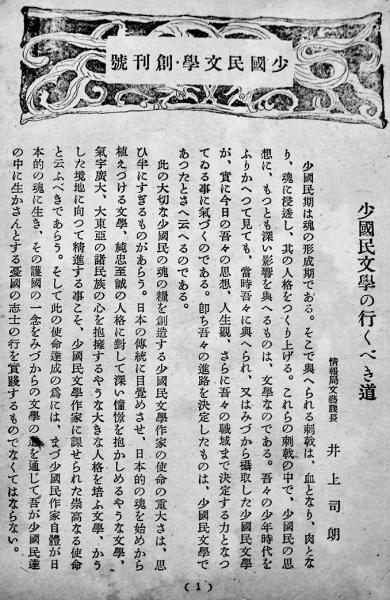 少國民文學・創刊號
少國民文學の行くべき道
情報局文藝課長
井上司朗
少國民期は魂の形成期である。そこで與へられる刺戟は、血となり、肉とな
り、魂に浸透し、其の人格をつくり上げる。これらの刺戟の中で、少國民の思
想に、もつとも深い影響を與へるものは、文學なのである。吾々の少年時代を
ふりかへつて見ても、當時吾々に與へられ、又はみづから攝取した少國民文學
が、實に今日の吾々の思想、人生觀、さらに吾々の職域まで決定する力となつ
てゐる事に氣づくのである。卽ち吾々の進路を決定したものは、少國民文學で
あつたとさへ云へるのである。
此の大切な少國民の魂の糧を創造する少國民文學作家の使命の重大さは、思
ひ半にすぎるものがあらう。日本の傳統に目覺めさせ、日本的の魂を始めから
植えつける文學、純忠至誠の人格に對して深い憧憬を抱かしめるやうな文學、
氣宇廣大、大東亞の諸民族の心を抱擁するやうな大きな人格を培ふ文學、かう
した境地に向つて精進する事こそ、少國民文學作家に課せられた崇高なる使命
と云ふべきであらう。そして此の使命達成の爲には、まづ少國民作家自體が日
本的の魂に生き、その護國の一念をみづからの文學の を通じて吾が少國民達
の中に生かさんとする憂國の志士の行を實踐するものでなくてはならない。
(1)